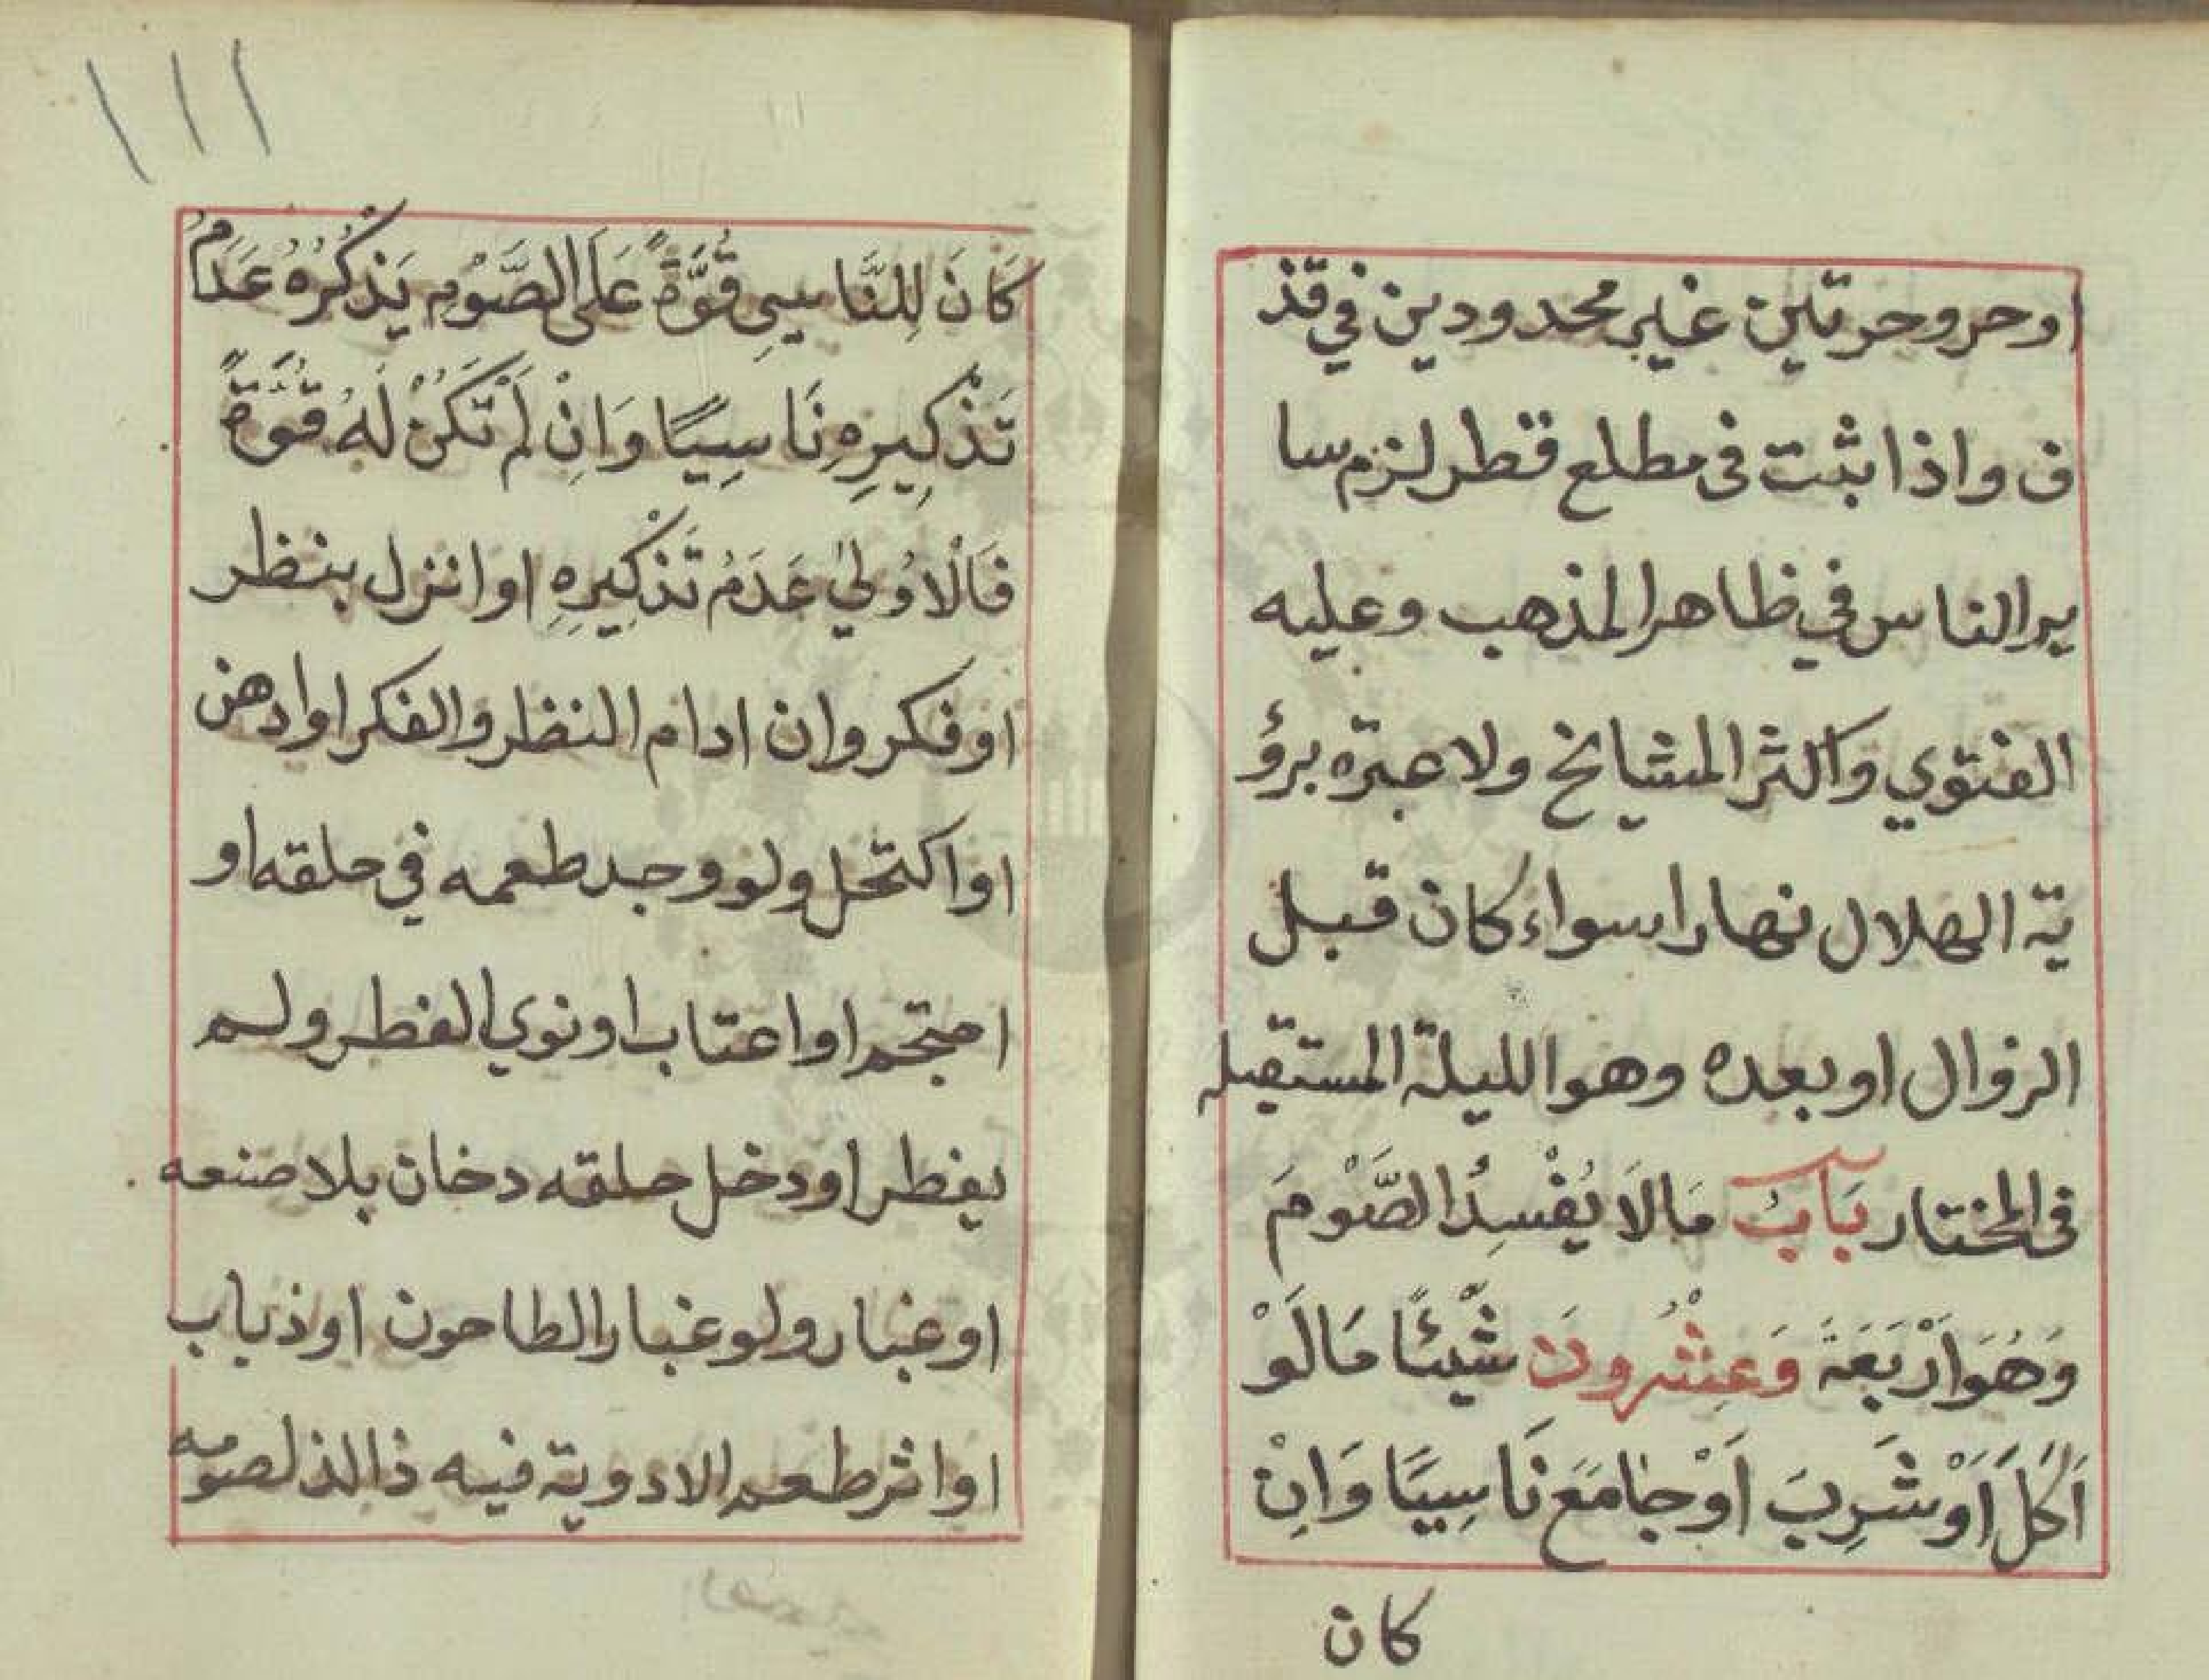 او حر وحرتين غير محدودين في قذ
ف واذا ثبت في مطلع قطر لزم سا
ير الناس في ظاهر المذهب وعليه
الفتوي واكثر المشايخ ولا عبرة برؤ
ية الهلال نهارا سواء كان قبل
الزوال او بعده وهو الليلة المستقبله
في المختار بَابُ مَا لَا يُفْسِدُ الصَّوْمَ
وَهُوَ اَرْبَعَةَ وَعِشْرُونَ شَيْئًا مَا لَوْ
اَكَلَ اَوْ شَرِبَ اَوْ جَامَعَ نَاسِيًا وَاِنْ
كان
١١١
كَانَ لِلنَّاسِي قُوَّةً عَلَى الصَّوْمِ يَذْكُرُهُ عَدَمُ
تَذْكِيرِهِ نَاسِيًا وَاِنْ لَمْ تَكُنْ لَهُ قُوَّةً
فَالْاَوُلٰي عَدَمُ تَذْكِيرِهِ او انزل بنظر
او فكر وان ادام النظر والفكر او ادهن
او اكتحل ولو وجد طعمه في حلقه او
احتجم او اعتاب او نوي الفطر ولم
يفطر او دخل حلقه دخان بلا صنعه
او غبار ولو غبار الطاحون او ذباب
او اثر طعم الادوية فيه ذالذ لصومه